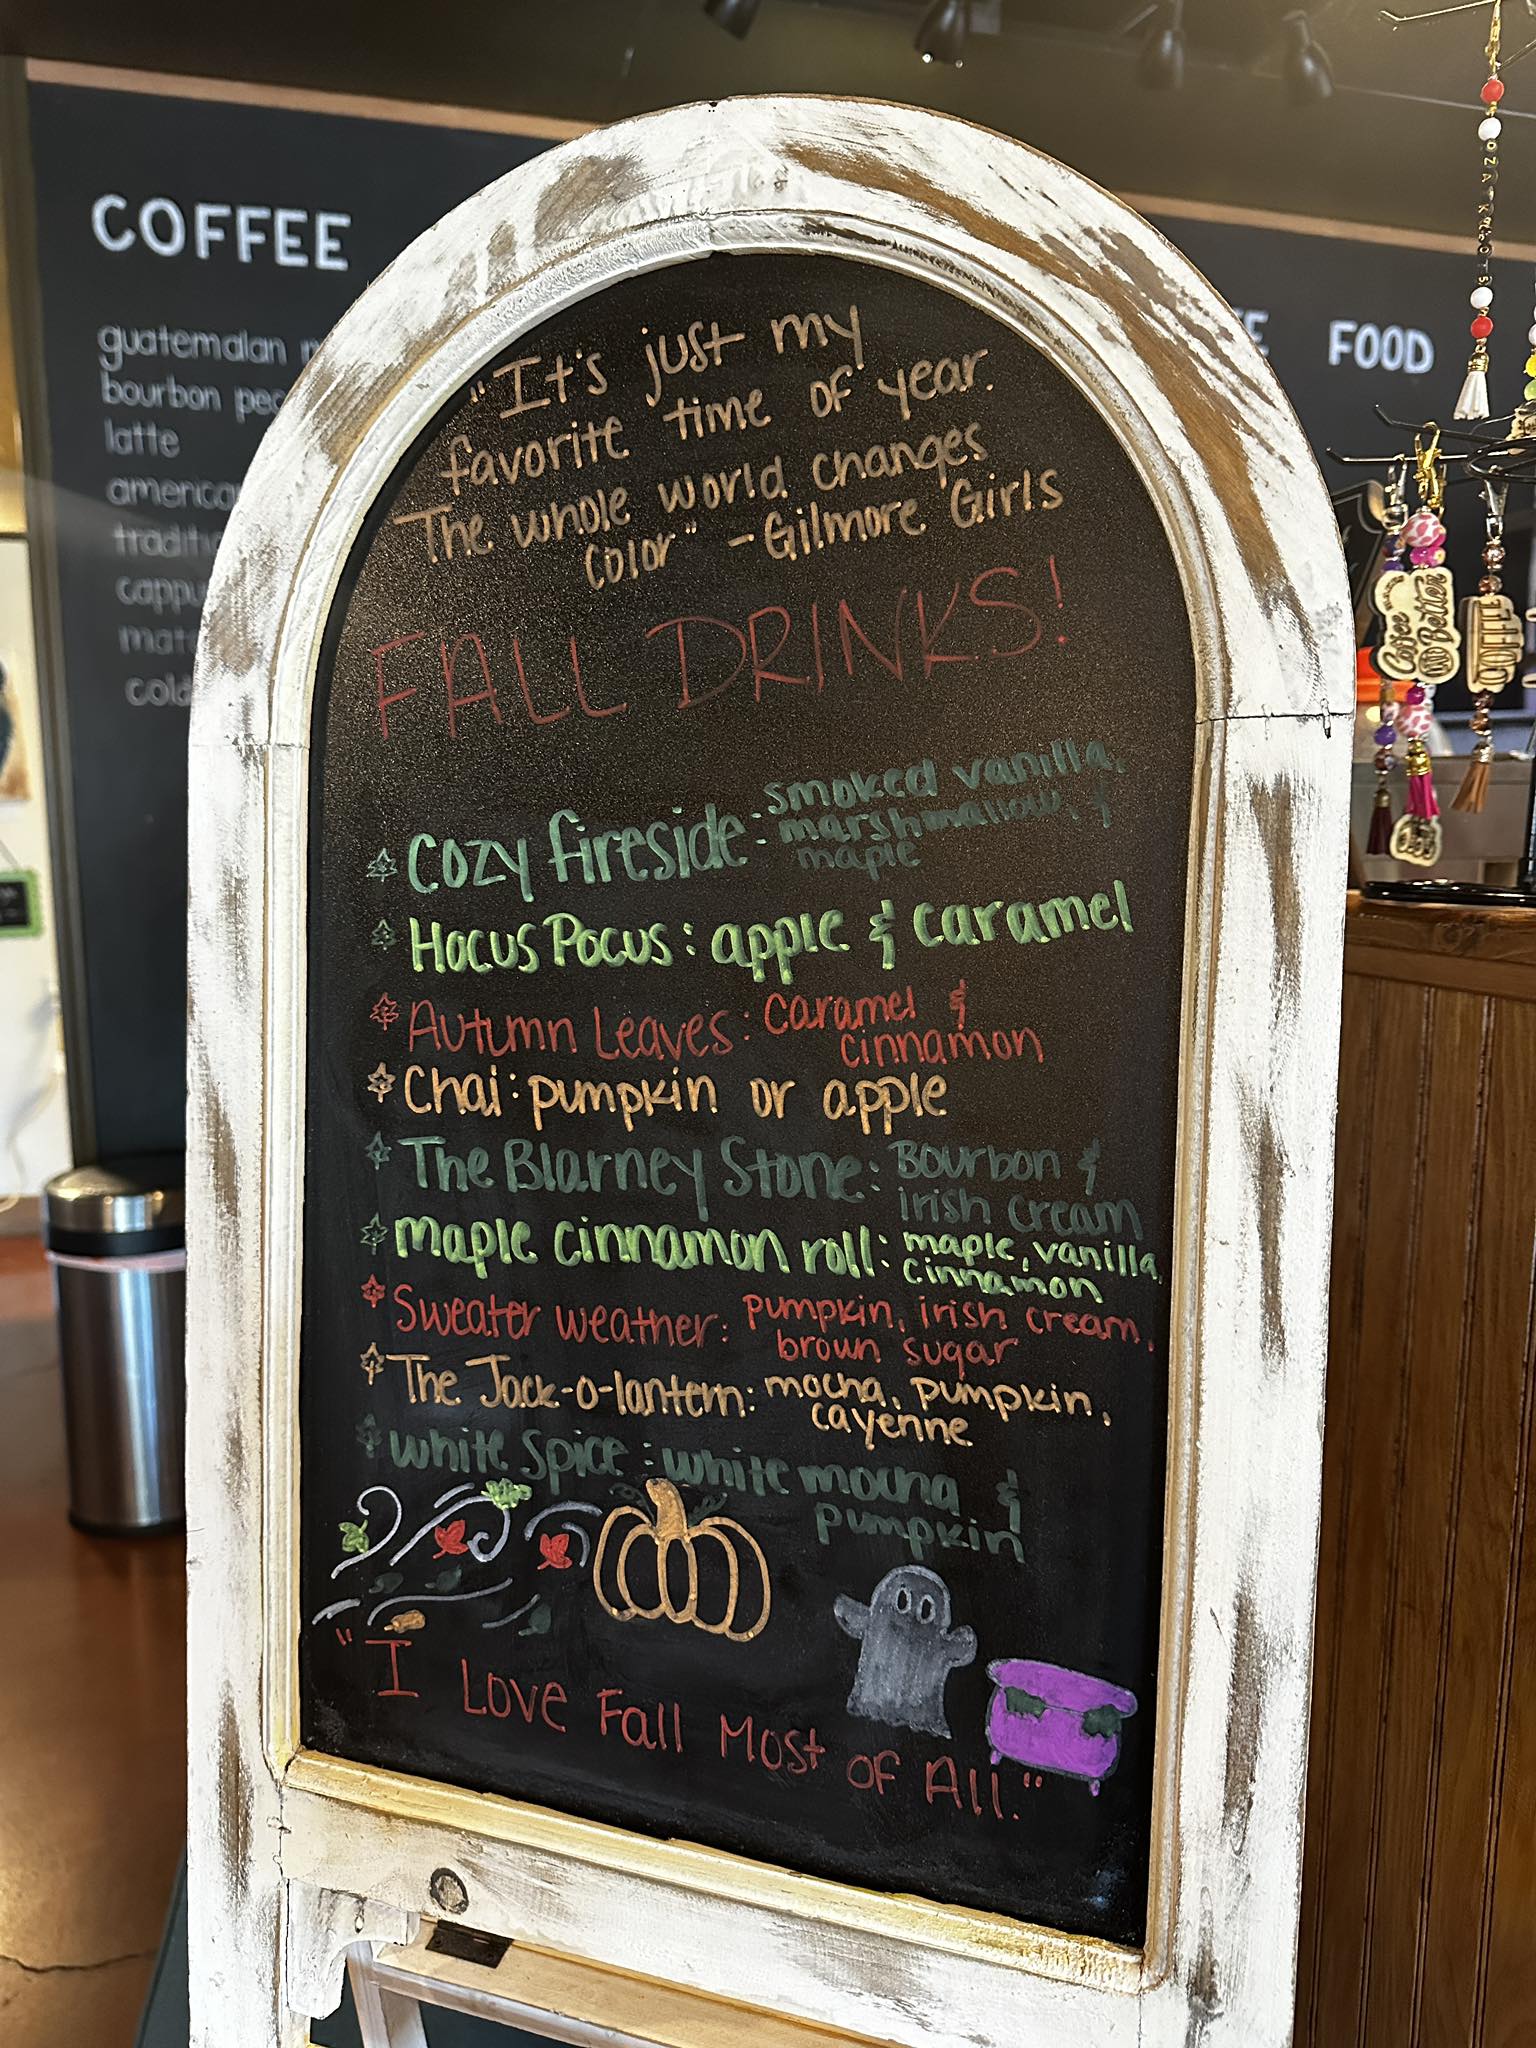 COFFEE
guatemalan
bourbon
latte
cold
FOOD
"It's just my
favorite time of year.
The whole world changes
color" - Gilmore Girls
FALL DRINKS!
Cozy fireside: smoked vanilla,
marshmallow, &
maple
Hocus Pocus: apple & caramel
Autumn Leaves: caramel &
cinnamon
Chai: pumpkin or apple
The Blarney Stone: Bourbon &
irish cream
maple cinnamon roll: maple, vanilla,
cinnamon
Sweater weather: pumpkin, irish cream,
brown sugar
The Jack-o-lantern: mocha, pumpkin,
cayenne
white Spice: white mocha &
pumpkin
"I Love Fall Most of All."
Coffee
AND
Better